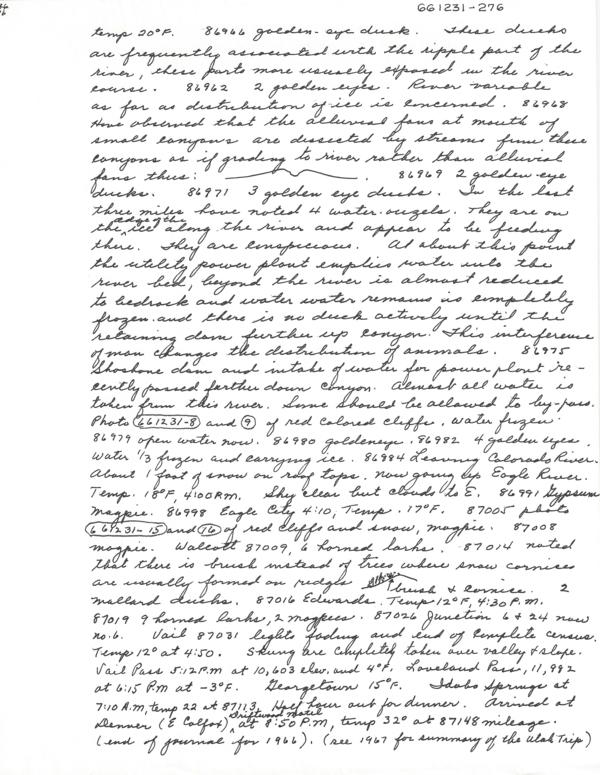 661231-276
temp 20°F. 86966 golden-eye duck. These ducks
are frequently associated with the ripple part of the
river, these parts more usually exposed in the river
course. 86962 2 golden eyes. River variable
as far as distribution of ice is concerned. 86968
Have observed that the alluvial fans at mouth of
small canyons are dissected by streams from these
canyons as if grading to river rather than alluvial
fans thus: . 86969 2 golden-eye
ducks. 86971 3 golden eye ducks. In the last
three miles have noted 4 water-ouzels. They are on
the edge of the ice along the river and appear to be feeding
there. They are conspicuous. At about this point
the utility power plant empties water into the
river bed, beyond the river is almost reduced
to bedrock and water water remains is completely
frozen and there is no duck activity until the
retaining dam further up canyon. This interference
of man changes the distribution of animals. 86975
Shoshone dam and intake of water for power plant re-
cently passed farther down canyon. Almost all water is
taken from this river. Some should be allowed to by-pass.
Photo 661231-8 and 9 of red colored cliffs, water frozen.
86979 open water now. 86980 goldeneye. 86982 4 golden eyes.
Water 1/3 frozen and carrying ice. 86984 Leaving Colorado River.
About 1 foot of snow on roof tops. Now going up Eagle River.
Temp. 18°F, 4:00 P.M. Sky clear but clouds to E. 86991 Gypsum
magpie. 86998 Eagle City 4:10, Temp. 17°F. 87005 photo
661231-15 and 16 of red cliffs and snow, magpie. 87008
magpie. Wolcott 87009, 6 horned larks. 87014 noted
that there is brush instead of trees where snow cornices
are usually formed on ridges brush & cornice. 2
mallard ducks. 87016 Edwards. Temp 12°F, 4:30 P.M.
87019 9 horned larks, 2 magpies. 87026 Junction 6 & 24 now
no. 6. Vail 87031 lights fading and end of complete census.
Temp 12° at 4:50. Skiing are completely taken over valley & slope.
Vail Pass 5:12 P.M. at 10,603 elev. and 4°F. Loveland Pass, 11,992
at 6:15 P.M at -3°F. Georgetown 15°F. Idaho Springs at
7:10 P.M, temp 22 at 87113. Half hour out for dinner. Arrived at
Denver (E Colfax) Driftwood Motel at 8:50 P.M, temp 32° at 87148 mileage.
(end of journal for 1966). (see 1967 for summary of the Utah Trip)